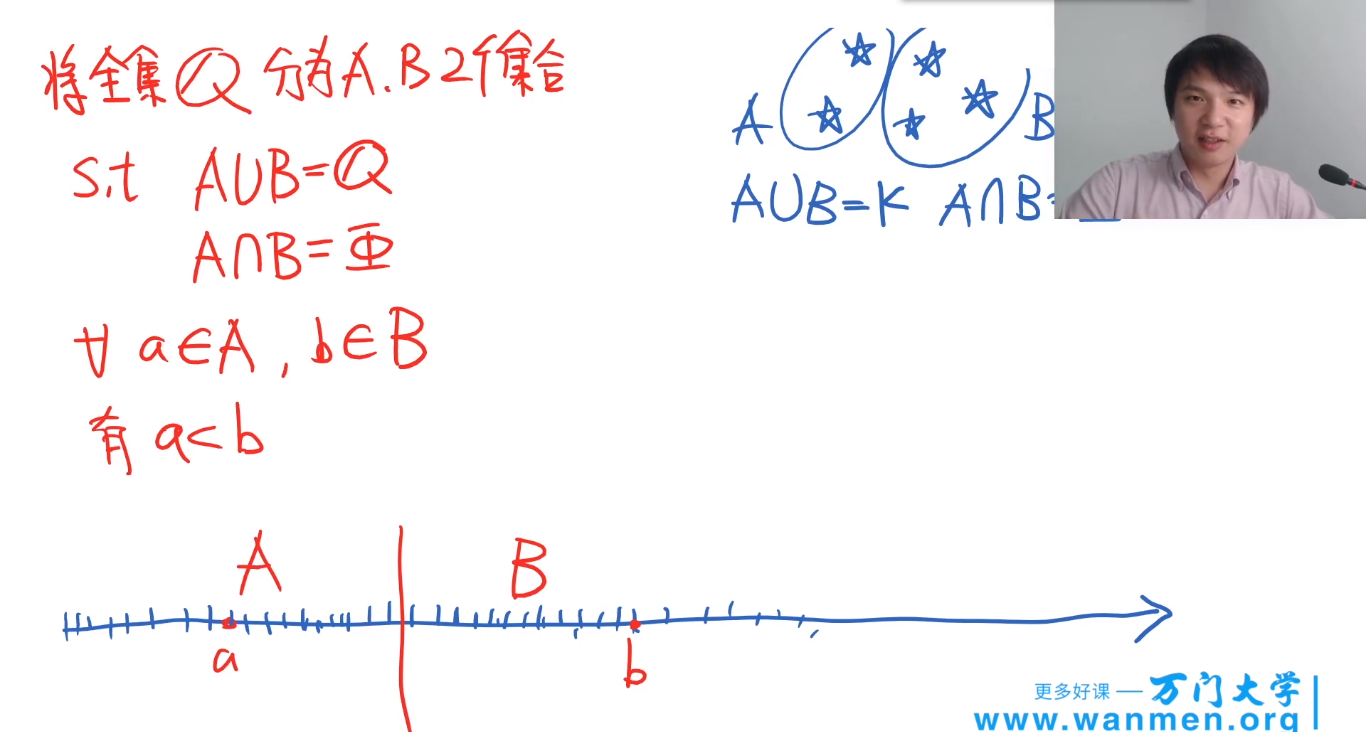 将全集Q分为A.B2个集合
s.t A∪B=Q
A∩B=Φ
∀ a∈A, b∈B
有 a<b
A B
A∪B=K A∩B=
A B
a b
更多好课 — 万门大学
www.wanmen.org